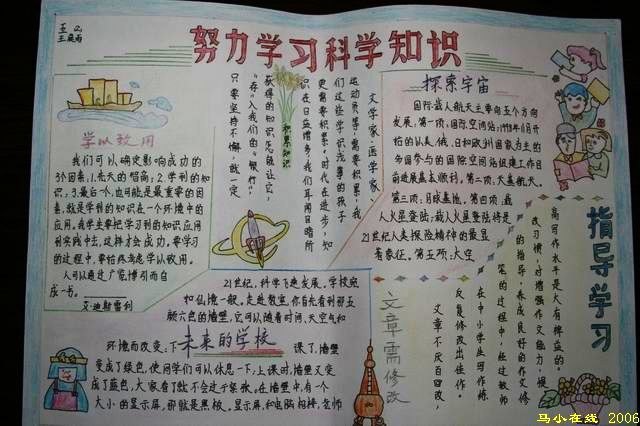 努力学习科学知识
学以致用
我们可以确定影响成功的
3个因素：1.先天的智商；2.学到的知
识；3.最后个，也可能是最重要的因
素，就是学到的知识在一个环境中的
应用。我學生要把学习到的知识应用
到实践中去，这样才会成功。要学习
的过程中，要始终考虑学以致用。
人可以通过广览博引而自
成一书。
艾迪斯雷利
积累知识
文学家、医学家、
运动员等，需要积累，我
们这些学识浅薄的孩子
更需要积累。时代在进步，知
识在日益增多我们耳闻目睹所
获得的知识怎能让它，
“存”入我们的“银行”，
只要坚持不懈，就一定
探索宇宙
国际载人航天主要向五个方向
发展：第一项：国际空间站：1998年11月开
始的以美、俄、日和欧洲国家为主的
多国参与的国际空间站组建工作目
前进展基本顺利。第二项：太基航天。
第三项：月球基地。第四项：载
人火星登陆：载人火星登陆将是
21世纪人类探险精神的最显
著象征。第五项：太空
指导学习
文章需修改
高写作水平是大有裨益的。
改习惯，对增强作文能力，提
的指导，养成良好的作文修
笔的过程中，经过教师
在中小学生写作练
反复修改出佳作。
文章不厌百回改，
未来的学校
21世纪，科学飞速发展，学校宛
如仙境一般。走进教室，你首先看到那五
颜六色的墙壁，它可以随着时间、天空和
环境而改变：下课了，墙壁
变成了绿色，使同学们可以休息一下；上课时，墙壁又变
成了蓝色，大家看了就不会过于紧张。在墙壁中，有一个
大大的显示屏，那就是黑板，显示屏和电脑相称，老师
马小在线 2006